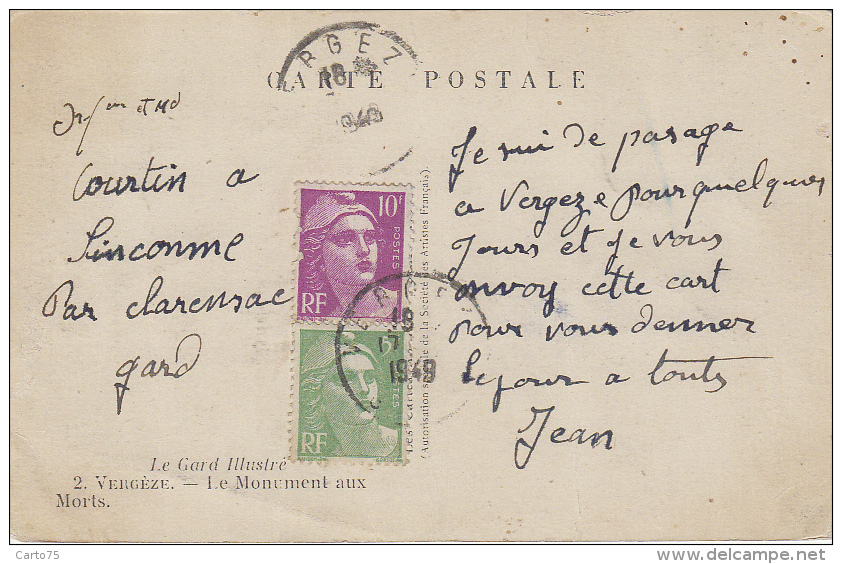 CARTE POSTALE
et Md
Courtin a
Sinconme
Par Clarensac
gard
Je sui de pasage
a Vergeze pour quelques
Jours et Je vous
envoy cette cart
pour vous denner
le jour a touts
Jean
VERGEZ
18
1949
10F
POSTES
RF
VERGEZE
18
17
1949
POSTES
RF
(Autorisation spéciale de la Société des Artistes Français).
Le Gard Illustré
2. VERGÈZE. — Le Monument aux
Morts.
Carto75
www.delcampe.net